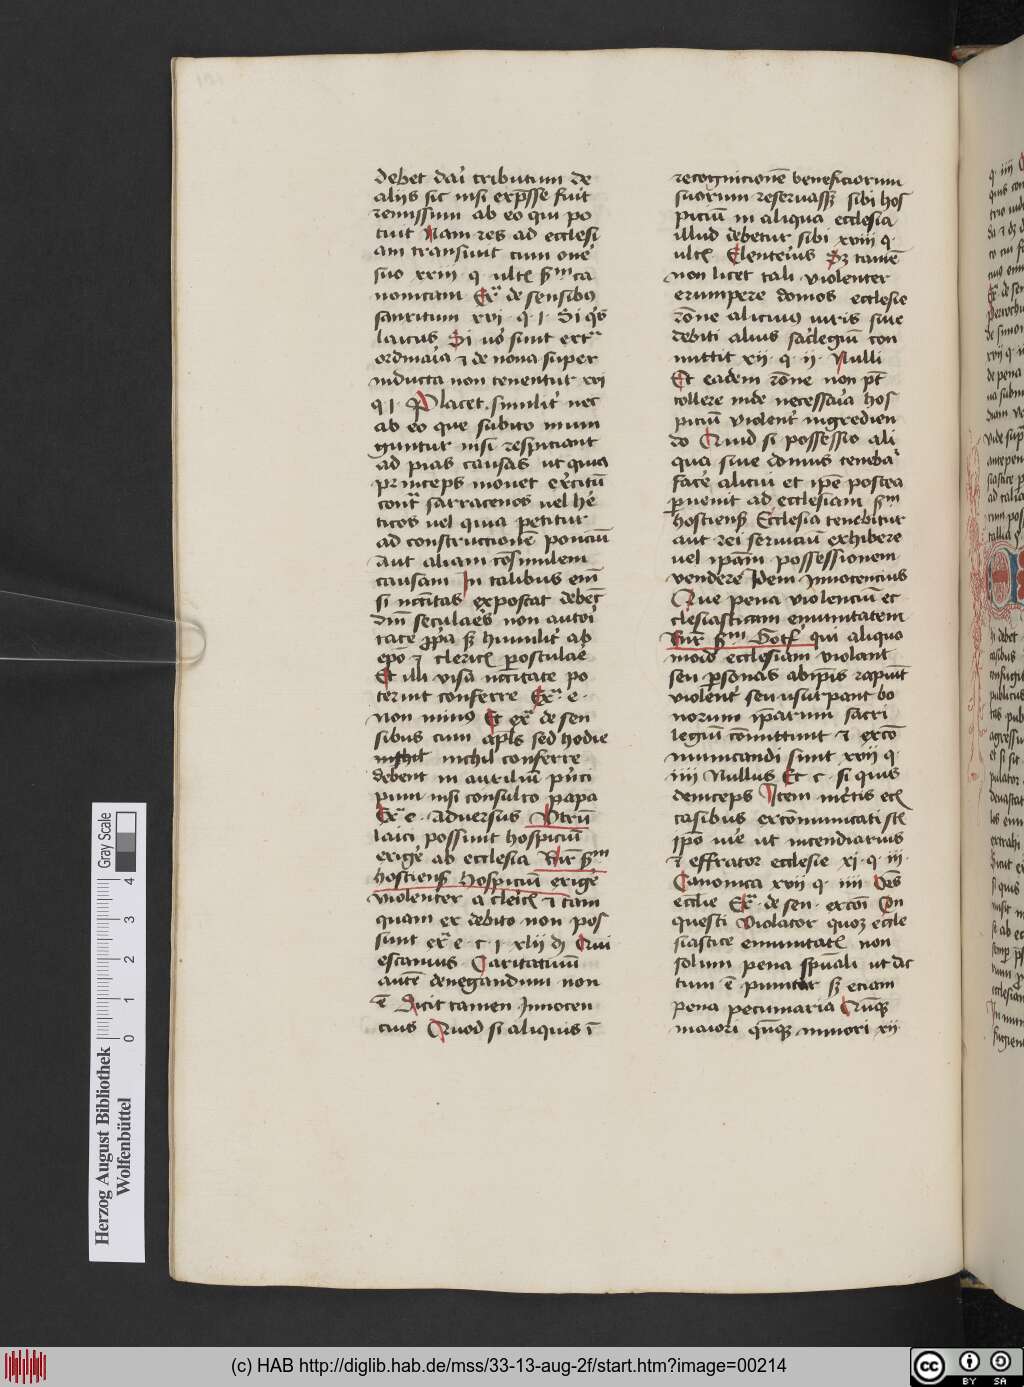 debet dari tributum de
aliis sic nisi exp̄sse fuit
remissum ab eo qui po
tuit Nam res ad ecclesi
am transiuit cum one̓
suo xxiii q ultɫ sm̄ ca
nonicam Exͣ de sensibꝰ
sancitum xvi · q · i · Si q̓s
laicus Si uo̓ sunt extͣ
ordinaͥa ⁊ de noua super
inducta non tenentur xvi
q i · Placet · similit̓ nec
ab eo que subito inium
guntur nisi respiciant
ad pias causas ut quia
princeps mouet exc̓itū
contͣ sarracenos uel he̓
ticos uel quia petitur
ad construccionē ponciū
aut aliam cōsimilem
causam In talibus em̄
si nc̄citas exposcat debet̄
dn̄i seculaes̓ non auto̓i
tate ꝓpͥa sꝫ humilit̓ ab
ep̄o ⁊ clericɫ postulae̓
Et illi visa nc̄citate po
terint conferre Exͣ e ·
non minꝰ Et exͣ de sen
sibus cum apɫs sed hodie
nichil nichil conferre
debent in auxiliū pͥnci
pum nisi consulto papa
Exͣ e · aduersus Utrū
laici possunt hospiciū
exige̓ ab ecclesia Rn̄r sm̄
hostiensꝫ Hospiciū exige̓
violenter a cle̓icɫ ⁊ tam
quam ex debito non pos
sunt exͣ e · c · i · xlii dı Qui
escamus · Caritatiuū
autē denegandum non
ē Dicit tamen Innocen
cius Quod si aliquis ī
recognicionē beneficiorum
suorum reseruassꝫ sibi hos
piciū in aliqua ecclesia
illud debetur sibi xviii q ·
ultɫ Elenterius Sꝫ tamē
non licet tali violenter
erumpere domos ecclesie
rōne alicuiꝰ iuris siue
debiti alius sac̓legiū con
mittit xii · q · ii · Nulli
Et eadem rōne non pt̄
tollere inde necessaͥa hos
piciū violent̓ ingredien
do Quid si possessio ali
qua siue domus teneba̓
face̓ alicui et ipē postea
ꝑuenit ad ecclesiam sm̄
hostiensꝫ Ecclesia tenebitur
aut rei seruiciū exhibere
uel ipam̄ possessionem
vendere Idem Innocencius
Que pena violenciū ec
clesiasticam emunitatem
Rn̄r sm̄ Gotf̓ qui aliquo
moıd ecclesiam violant
seu ꝑsonas abip̄is rapiūt
violent̓ seu usurpant bo
norum ip̄arum sacri
legiū cōmittunt ⁊ excō
municandi sunt xvii q ·
iiii Nullus Et c · si quis
deinceps Item inc̓tis ecɫ
casibus excōmunicati sɫ
ip̄o iu̓e ut incendiarius
⁊ effrator ecclesie xi · q · iii ·
Canonica xvii q · iiii Om̄s
ecclie Exͣ · de sen · excōi Con
questi Violator quoꝫ eccle
siastice emunitatɫ non
solum pena spūali ut dic
tum ē punitur sꝫ eciam
pena pecuniaria Cūqꝫ
maiori qn̄qꝫ minori xii
Herzog August Bibliothek
Wolfenbüttel
Gray Scale
0 1 2 3 4
(c) HAB http://diglib.hab.de/mss/33-13-aug-2f/start.htm?image=00214
cc BY SA